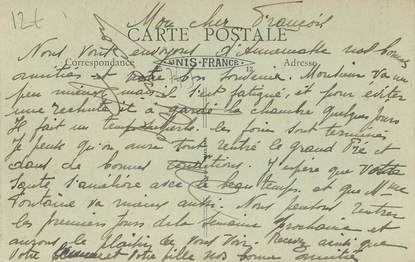 12f
Mon cher François
CARTE POSTALE
Correspondance UNIS-FRANCE Adresse
Nous vous envoyons d'Annemasse nos bonnes
amitiés et notre bon souvenir. Monsieur va un
peu mieux mais il s'est fatigué, et pour éviter
une rechute il a gardé la chambre quelques jours
Il fait un temps superbe. les foins sont terminés
Je pense qu'on aura tout rentré le grand Pré et
dans de bonnes conditions. J'espère que votre
santé s'améliore avec le beau temps et que Mme
Fontaine va mieux aussi. Nous pensons rentrer
les premiers jours de la semaine prochaine et
aurons le plaisir de vous voir. Recevez ainsi que
votre et votre fille nos bonnes amitiés